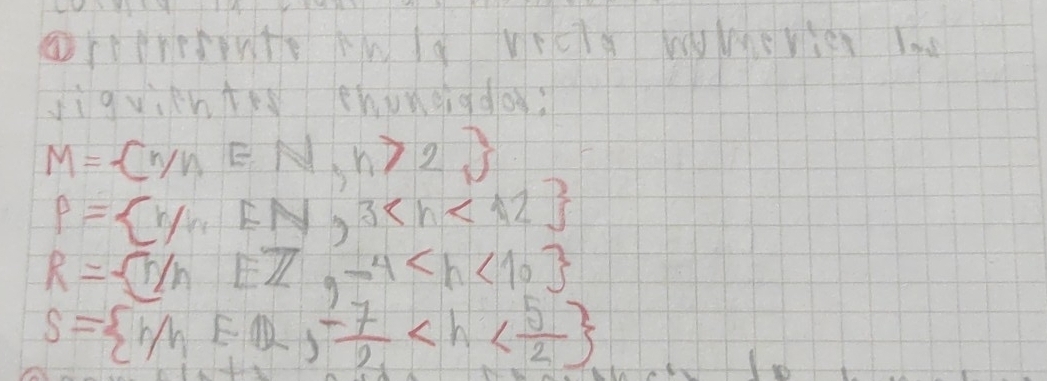 ① represente en la recta numerica los
siguientes enunciados:
M = {n/n E N, n > 2 }
P = {n/n E N, 3 < n < 12 }
R = {n/n E ℤ, -4 < n < 10 }
S = {n/n E Q, -7/2 < n < 5/2 }